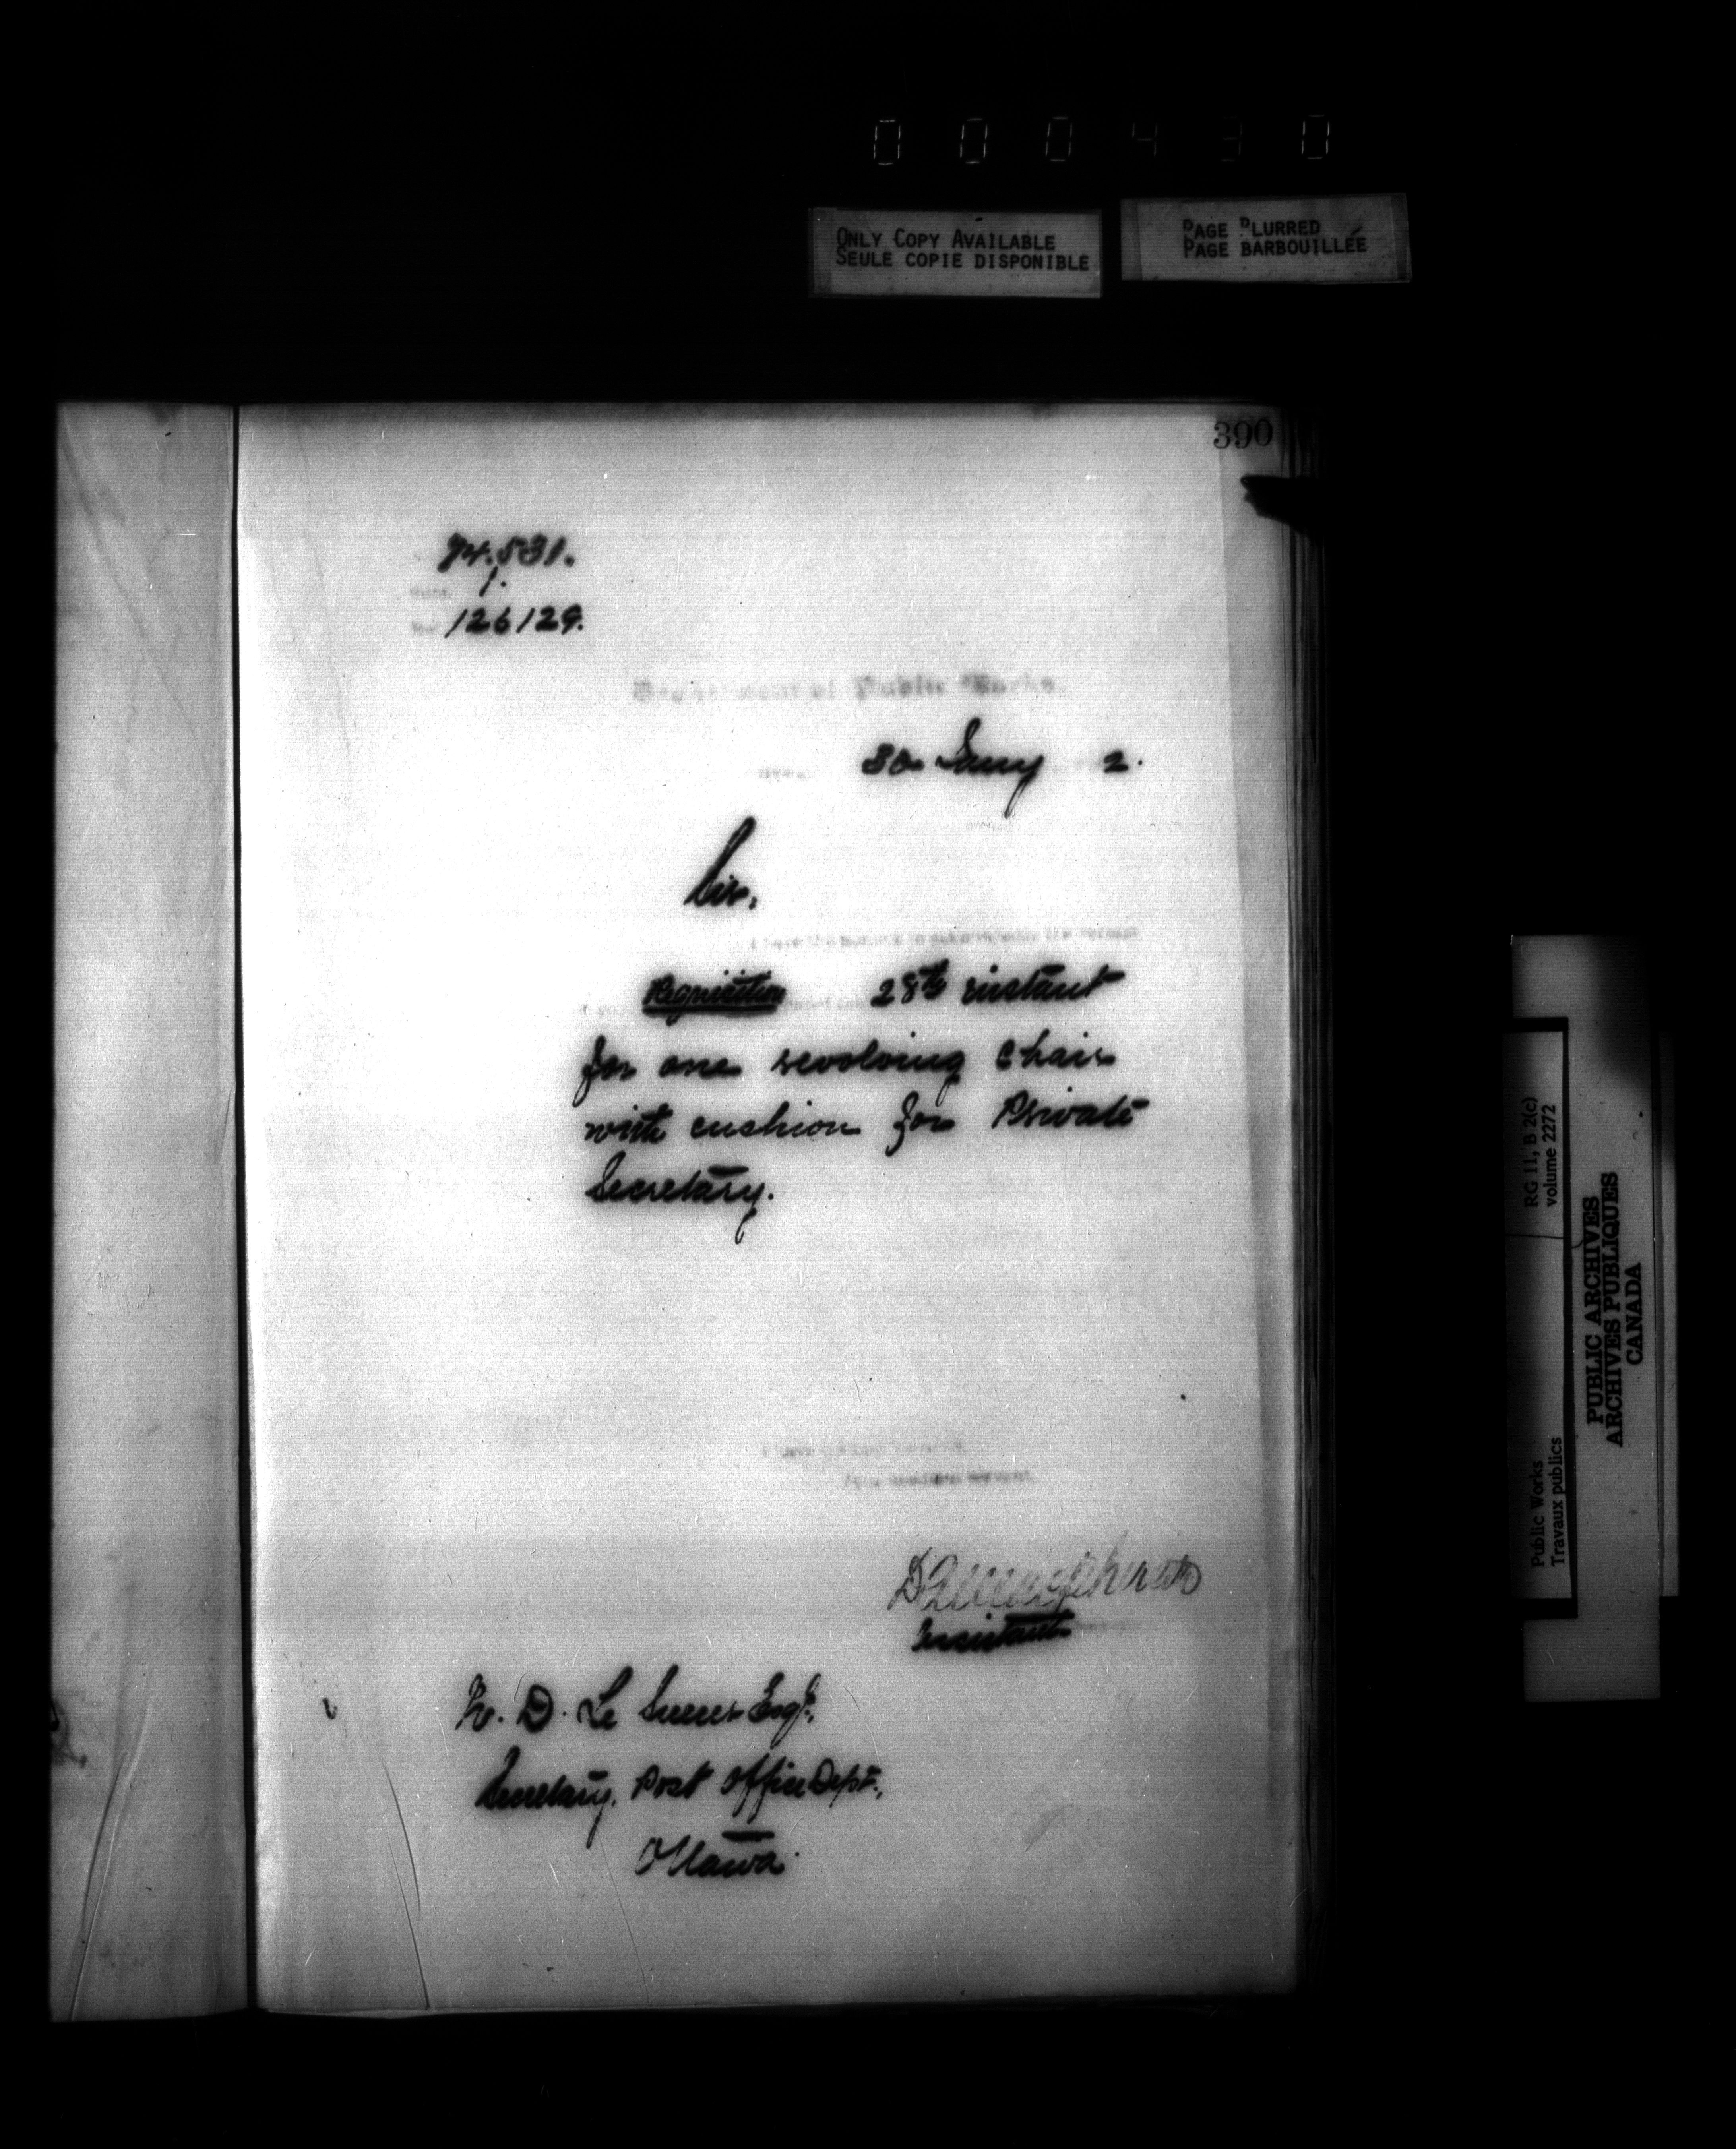 0 0 0 4 3 0
ONLY COPY AVAILABLE
SEULE COPIE DISPONIBLE
PAGE BLURRED
PAGE BARBOUILLÉE
390
74.531.
1.
126129.
Department of Public Works
30 Jany 2.
Sir,
I have the honour to acknowledge the receipt
Requisition 28th instant
for one revolving chair
with cushion for Private
Secretary.
I have
Your obedient servant,
Assistant
W. D. Le Sueur Esqr.
Secretary, Post Office Dept.,
Ottawa.
Public Works
Travaux publics
RG 11, B 2(c)
volume 2272
PUBLIC ARCHIVES
ARCHIVES PUBLIQUES
CANADA